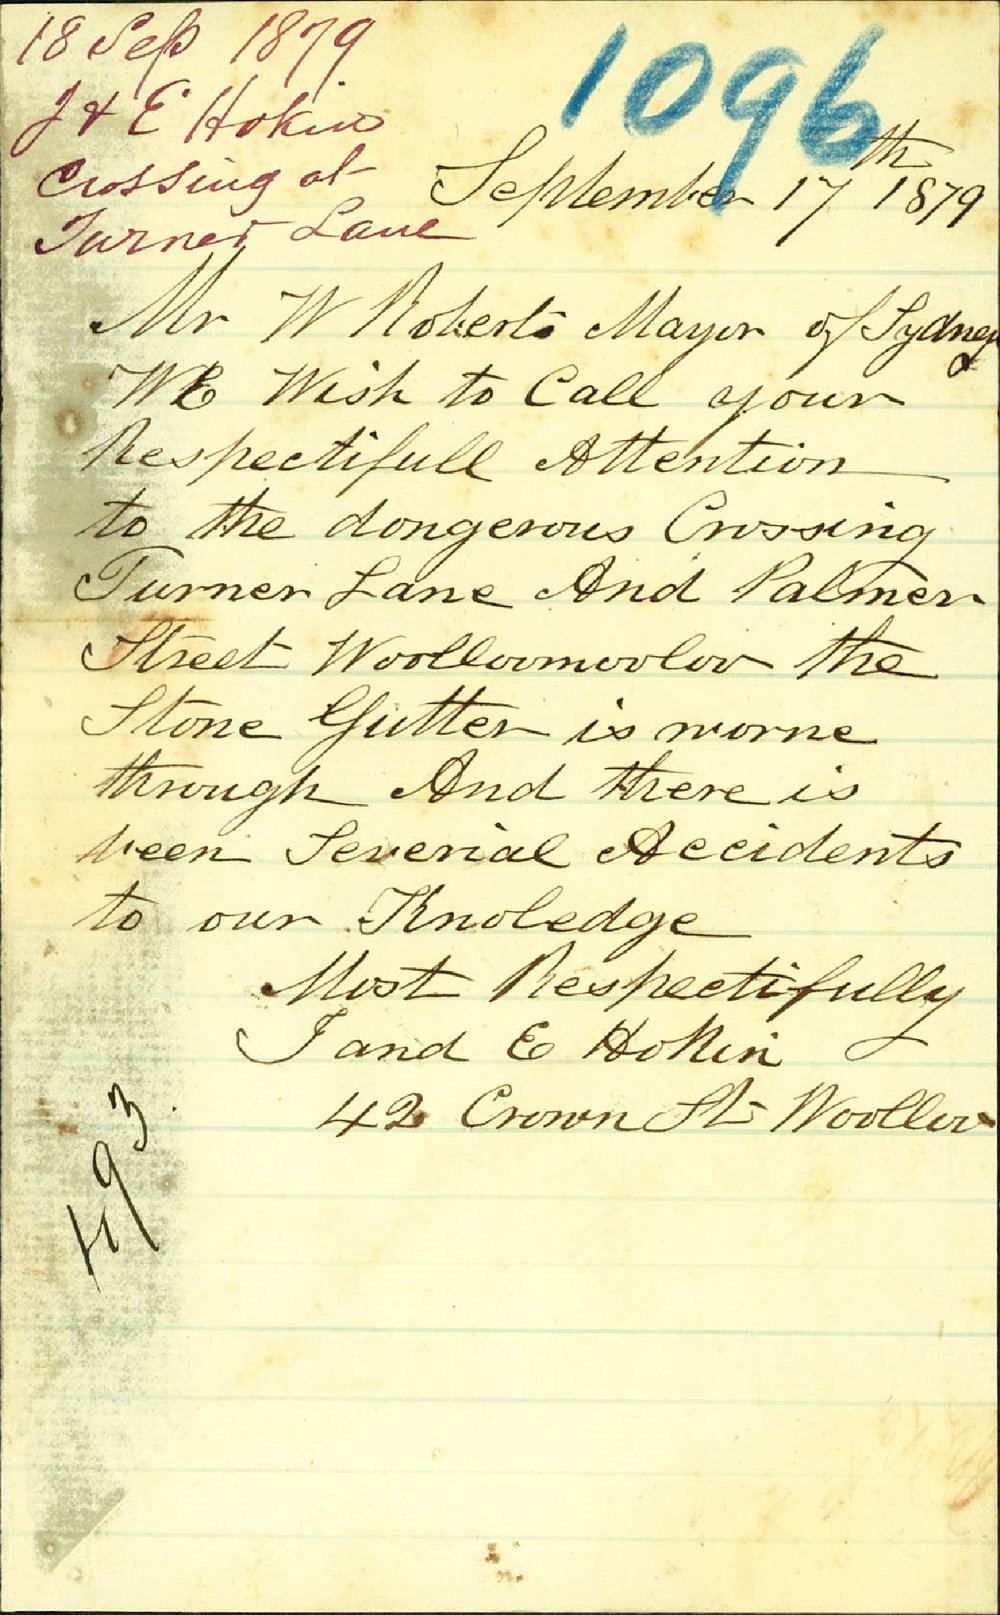 18 Sep 1879
J & E Hokin
Crossing at
Turner Lane
1096
September 17th 1879
Mr W Roberts Mayor of Sydney
WE Wish to Call your
Respectifull Attention
to the dongerous Crossing
Turner Lane And Palmer
Street Woolloomooloo the
Stone Gutter is worne
through And there is
been Severial Accidents
to our Knoledge
Most Respectifully
J and E Hokin
42 Crown St Woolloo
493